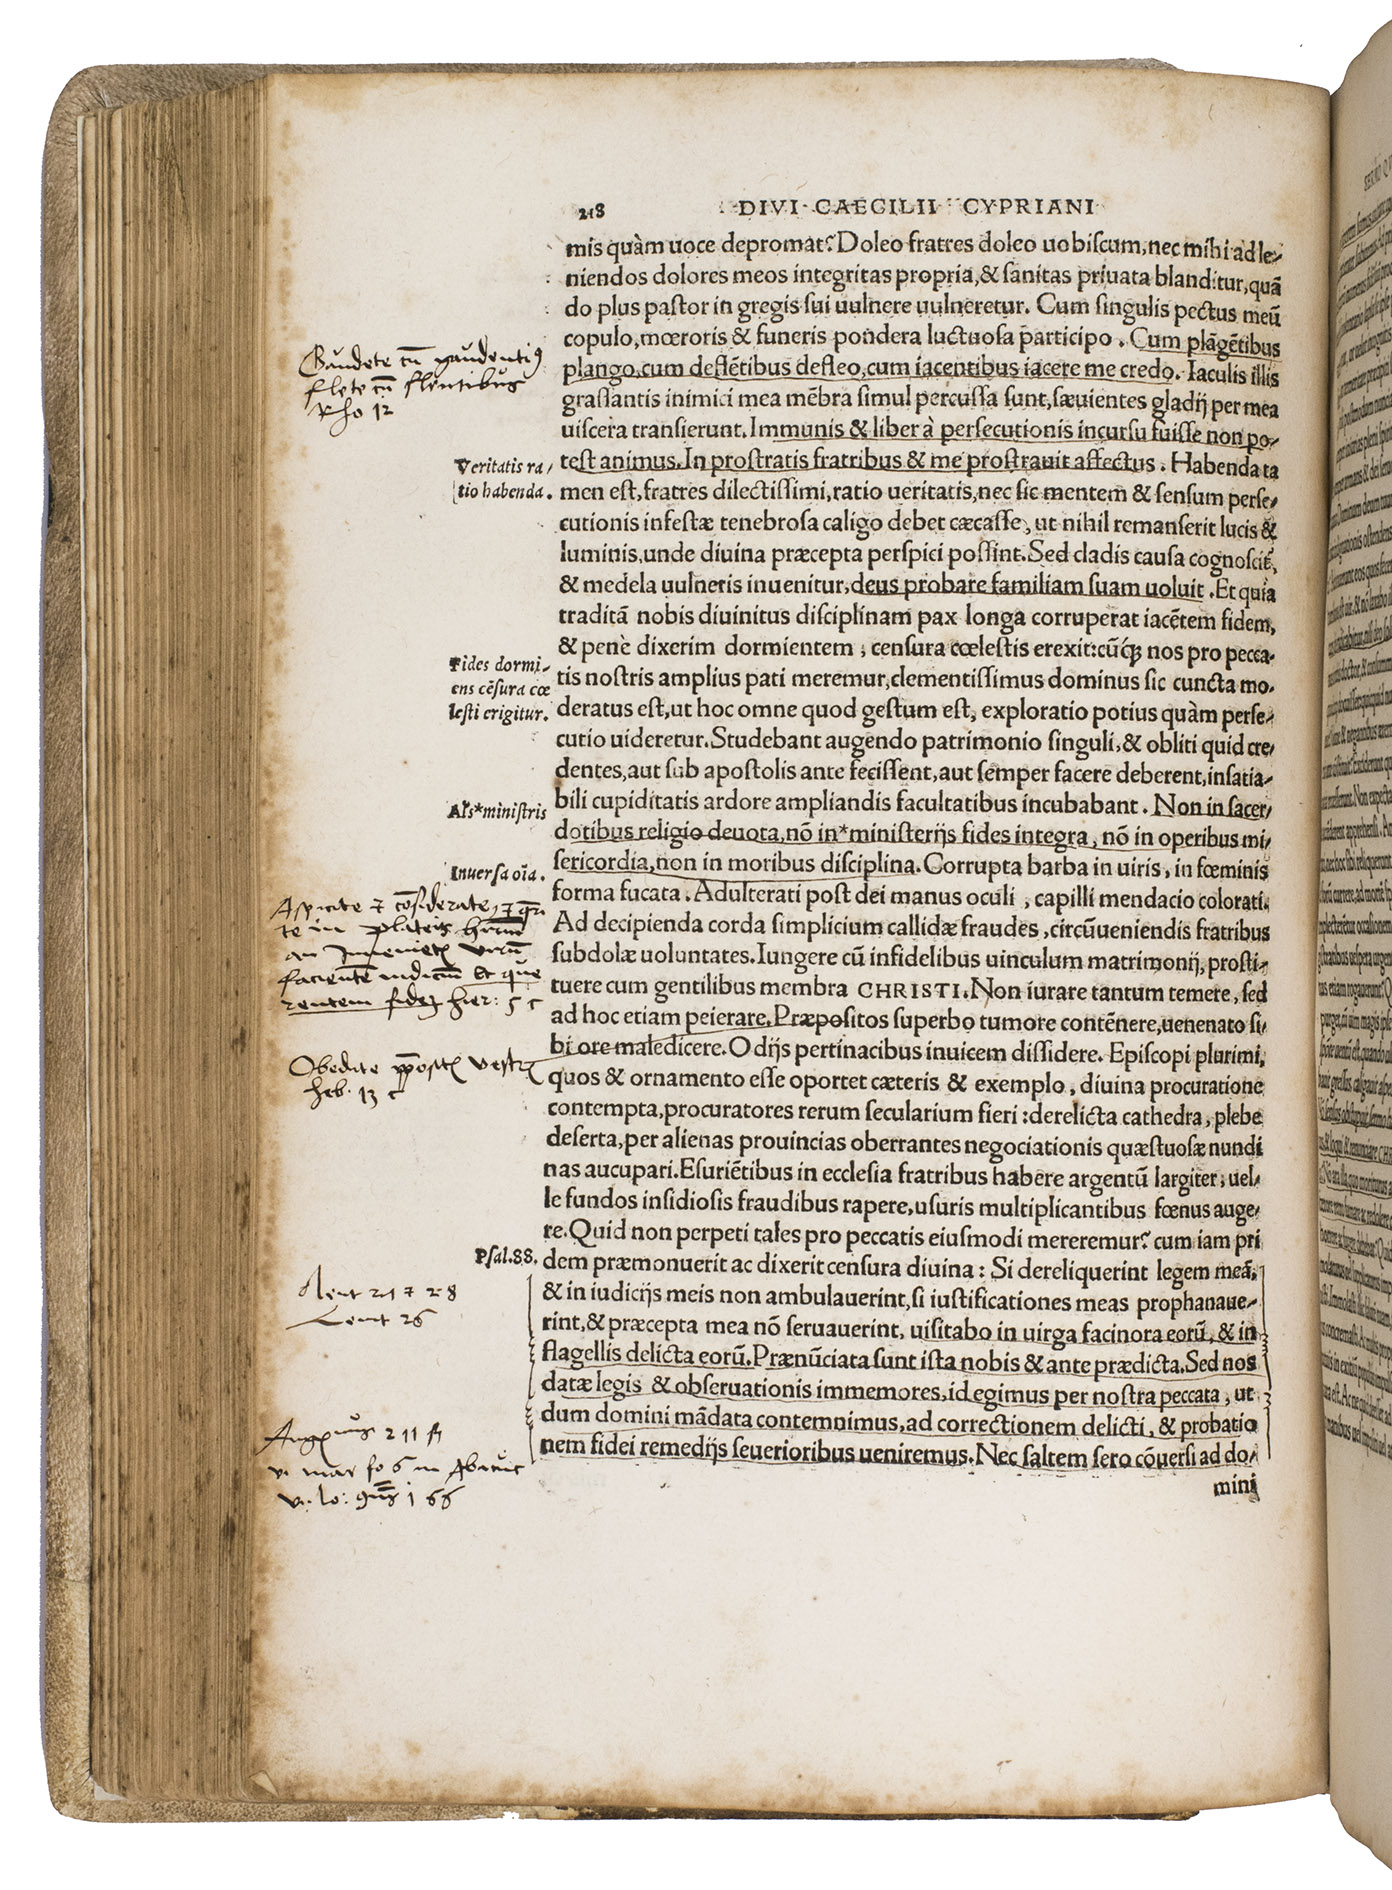 218 DIVI CAECILII CYPRIANI
mis quàm uoce depromat? Doleo fratres doleo uobiscum, nec mihi ad le-
niendos dolores meos integritas propria, & sanitas priuata blanditur, quā
do plus pastor in gregis sui uulnere uulneretur. Cum singulis pectus meū
copulo, mœroris & funeris pondera luctuosa participo. Cum plāgētibus
plango, cum deflētibus defleo, cum iacentibus iacere me credo. Iaculis illis
grassantis inimici mea mēbra simul percussa sunt, sæuientes gladij per mea
uiscera transierunt. Immunis & liber à persecutionis incursu fuisse non po-
test animus. In prostratis fratribus & me prostrauit affectus. Habenda ta
men est, fratres dilectissimi, ratio ueritatis, nec sic mentem & sensum perse-
cutionis infestæ tenebrosa caligo debet cæcasse, ut nihil remanserit lucis &
luminis, unde diuina præcepta perspici possint. Sed cladis causa cognoscit̄,
& medela uulneris inuenitur, deus probare familiam suam uoluit. Et quia
traditā nobis diuinitus disciplinam pax longa corruperat iacētem fidem,
& penè dixerim dormientem, censura cœlestis erexit: cūq́; nos pro pecca-
tis nostris amplius pati meremur, clementissimus dominus sic cuncta mo-
deratus est, ut hoc omne quod gestum est, exploratio potius quàm perse-
cutio uideretur. Studebant augendo patrimonio singuli, & obliti quid cre-
dentes, aut sub apostolis ante fecissent, aut semper facere deberent, insatia-
bili cupiditatis ardore ampliandis facultatibus incubabant. Non in sacer-
dotibus religio deuota, nō in *ministerijs fides integra, nō in operibus mi-
sericordia, non in moribus disciplina. Corrupta barba in uiris, in fœminis
forma fucata. Adulterati post dei manus oculi, capilli mendacio colorati.
Ad decipienda corda simplicium callidæ fraudes, circūueniendis fratribus
subdolæ uoluntates. Iungere cū infidelibus uinculum matrimonij, prosti-
tuere cum gentilibus membra CHRISTI. Non iurare tantum temere, sed
ad hoc etiam peierare. Præpositos superbo tumore contēnere, uenenato si-
bi ore maledicere. Odijs pertinacibus inuicem dissidere. Episcopi plurimi,
quos & ornamento esse oportet cæteris & exemplo, diuina procuratione
contempta, procuratores rerum secularium fieri: derelicta cathedra, plebe
deserta, per alienas prouincias oberrantes negociationis quæstuosæ nundi
nas aucupari. Esuriētibus in ecclesia fratribus habere argentū largiter, uel-
le fundos insidiosis fraudibus rapere, usuris multiplicantibus fœnus auge-
re. Quid non perpeti tales pro peccatis eiusmodi mereremur? cum iam pri
dem præmonuerit ac dixerit censura diuina: Si dereliquerint legem meā,
& in iudicijs meis non ambulauerint, si iustificationes meas prophanaue-
rint, & præcepta mea nō seruauerint, uisitabo in uirga facinora eorū, & in
flagellis delicta eorū. Prænūciata sunt ista nobis & ante prædicta. Sed nos
datæ legis & obseruationis immemores, id egimus per nostra peccata, ut
dum domini mādata contemnimus, ad correctionem delicti, & probatio
nem fidei remedijs seuerioribus ueniremus. Nec saltem sero cōuersi ad do-
mini
Gaudete cū gaudentib9
flete cū flentibus
Rho 12
Veritatis ra-
tio habenda.
Fides dormi-
ens cēsura cœ
lesti erigitur.
Als*ministris
Inuersa oīa.
Aspicite et cōsiderate, et
te in plateis
an
faciente iudiciū et que
rentem fidē hier: 5 c
Obedite vestris
heb. 13 c
Psal.88.
28
Leuit 26
211
6
166